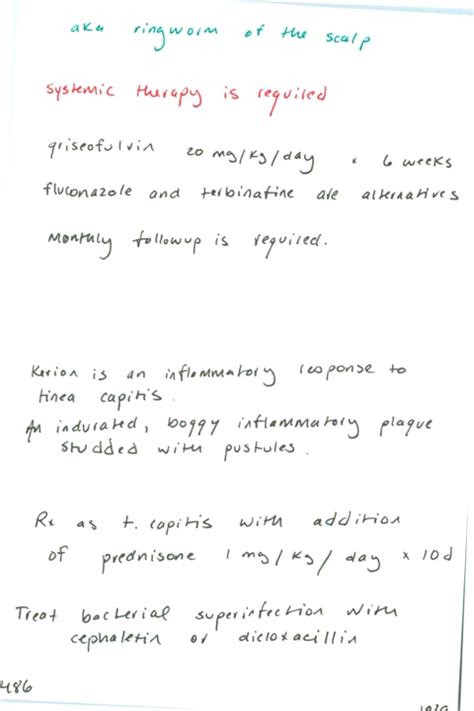 aka ringworm of the scalp
systemic therapy is required
griseofulvin 20 mg/kg/day x 6 weeks
fluconazole and terbinafine are alternatives
Monthly followup is required.
Kerion is an inflammatory response to
tinea capitis.
An indurated, boggy inflammatory plaque
studded with pustules.
Rx as t. capitis with addition
of prednisone 1 mg/kg/day x 10d
Treat bacterial superinfection with
cephalexin or dicloxacillin
486